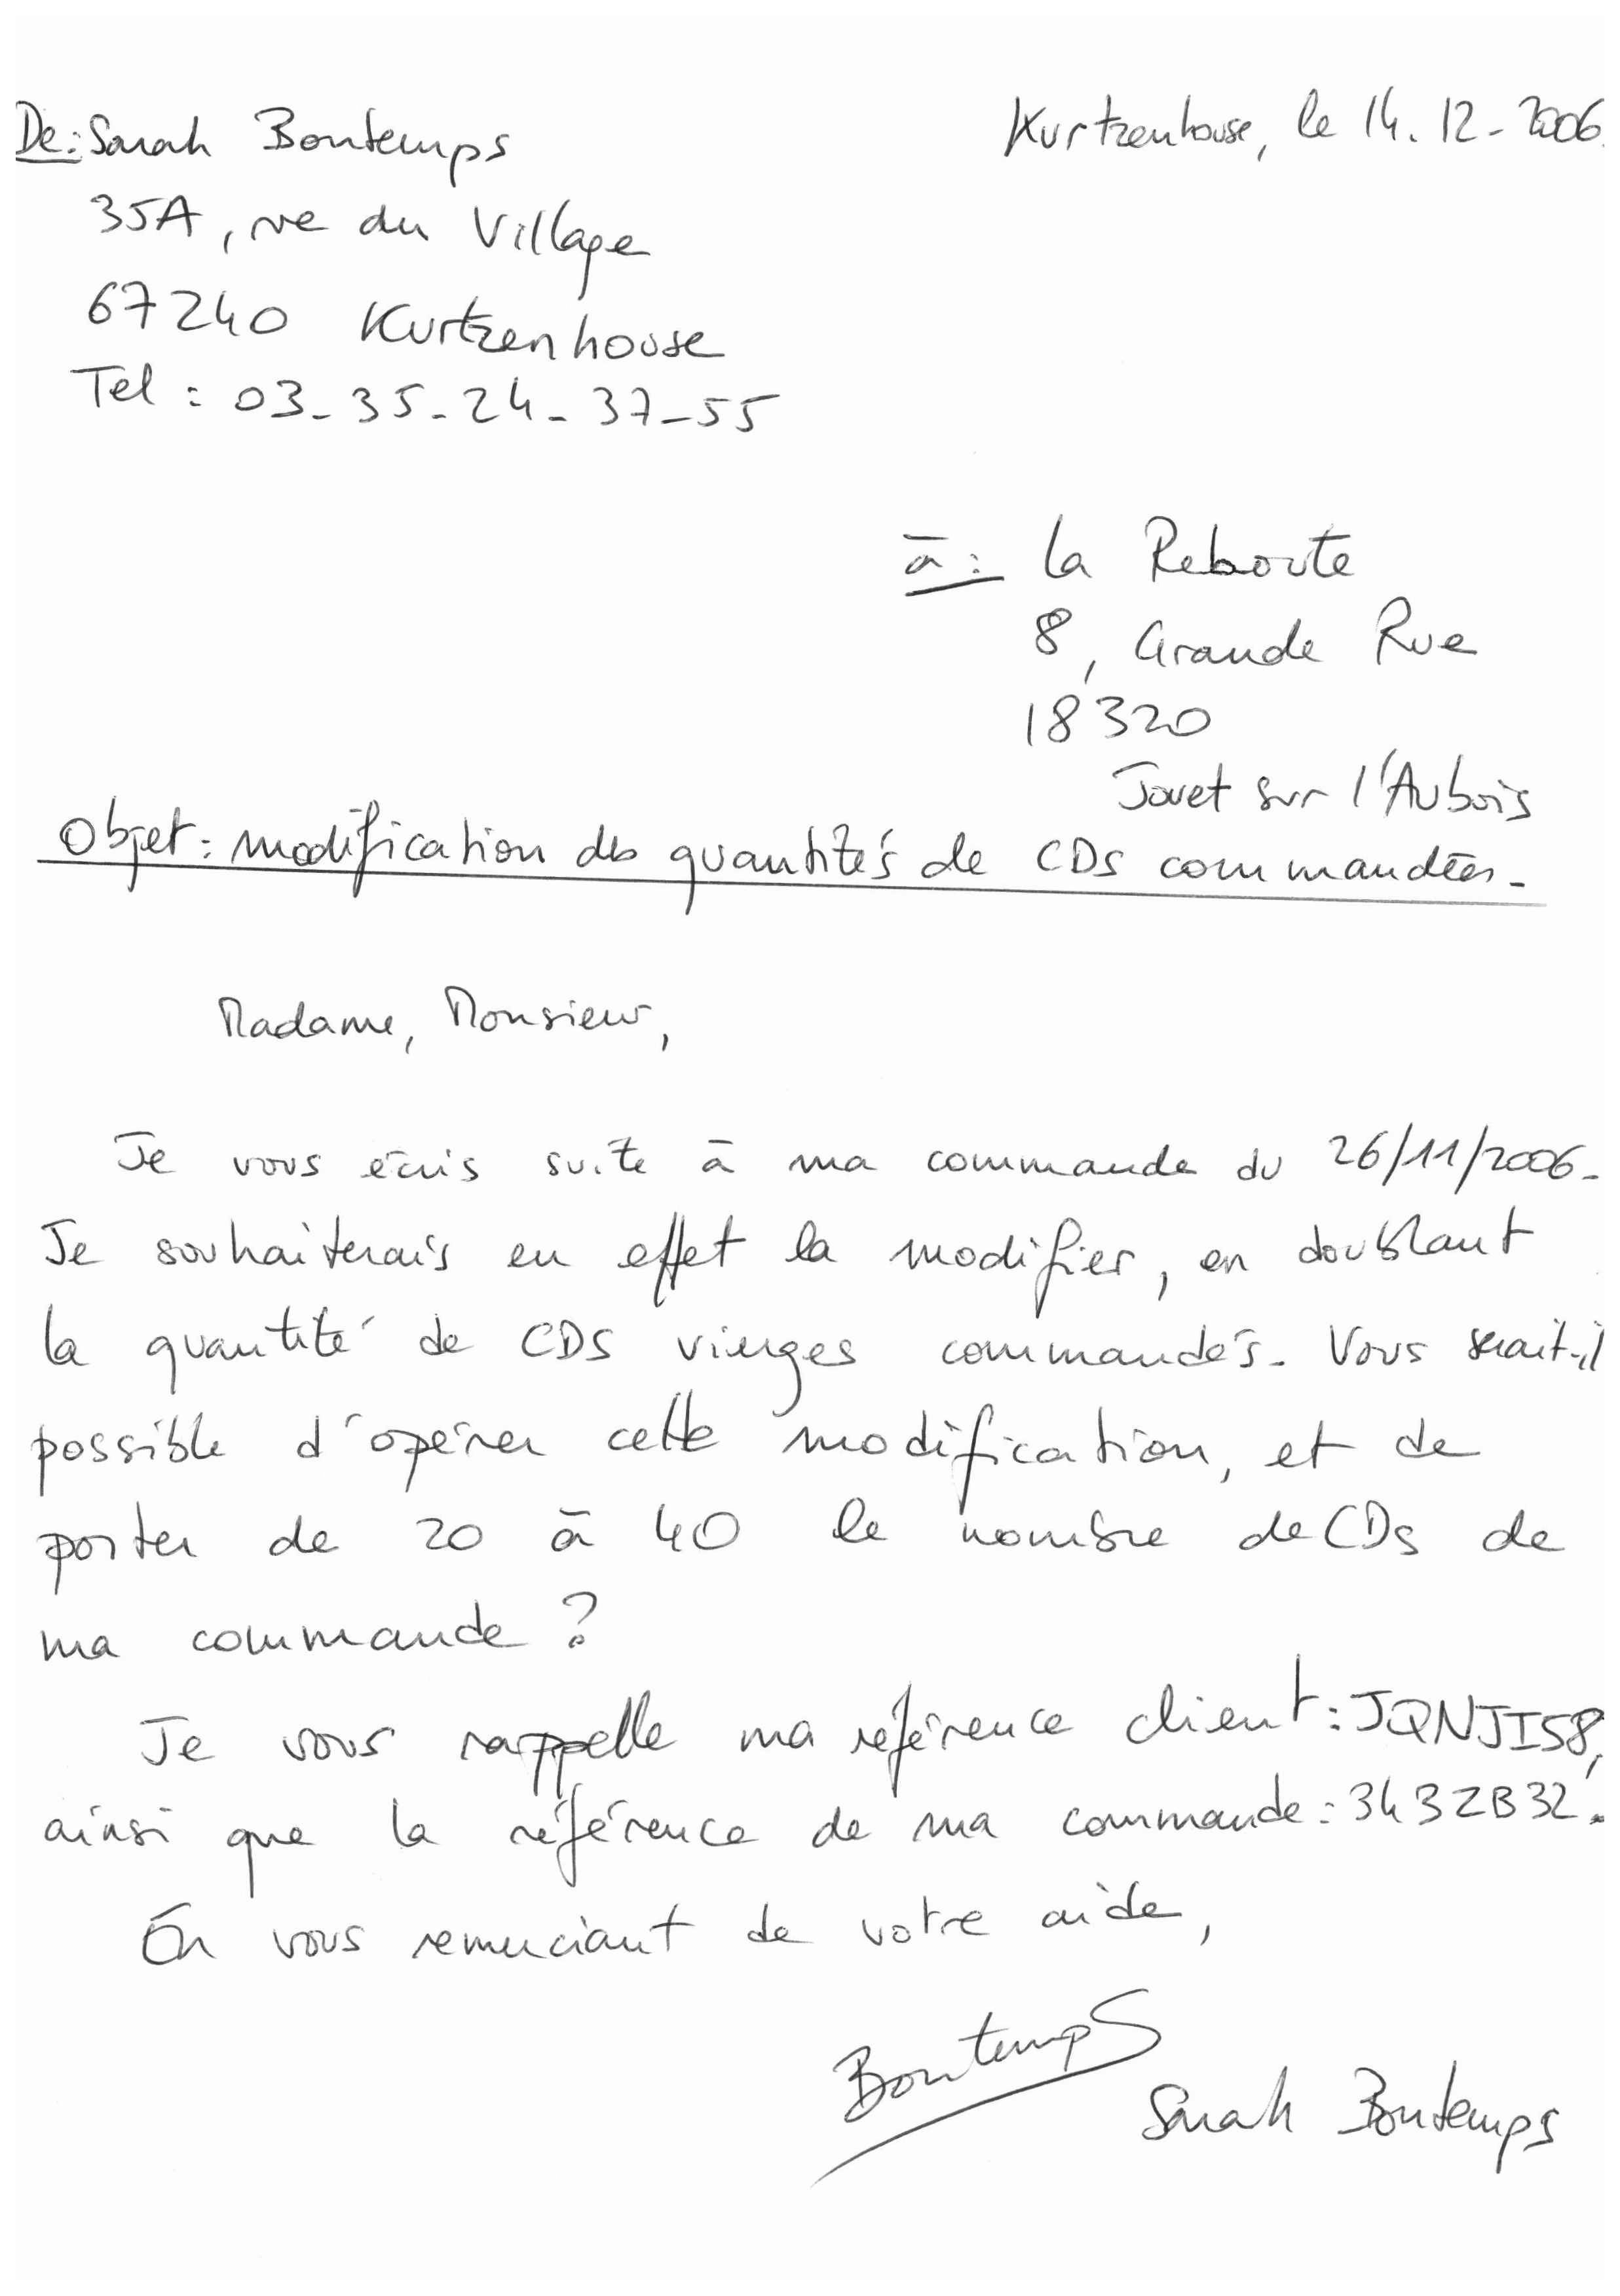 De: Sarah Bontemps
Kurtzenhouse, le 14.12-2006
35A, rue du Village
67240 Kurtzenhouse
Tel : 03-35-24-37-55
à: la Reboute
8, Grande Rue
18320
Jouet sur l'Aubois
Objet: modification des quantités de CDs commandées.
Madame, Monsieur,
Je vous écris suite à ma commande du 26/11/2006.
Je souhaiterais en effet la modifier, en doublant
la quantité de CDs vierges commandés. Vous serait-il
possible d'opérer cette modification, et de
porter de 20 à 40 le nombre de CDs de
ma commande ?
Je vous rappelle ma référence client: JQNJI58,
ainsi que la référence de ma commande: 343ZB32.
En vous remerciant de votre aide,
BontempS
Sarah Bontemps